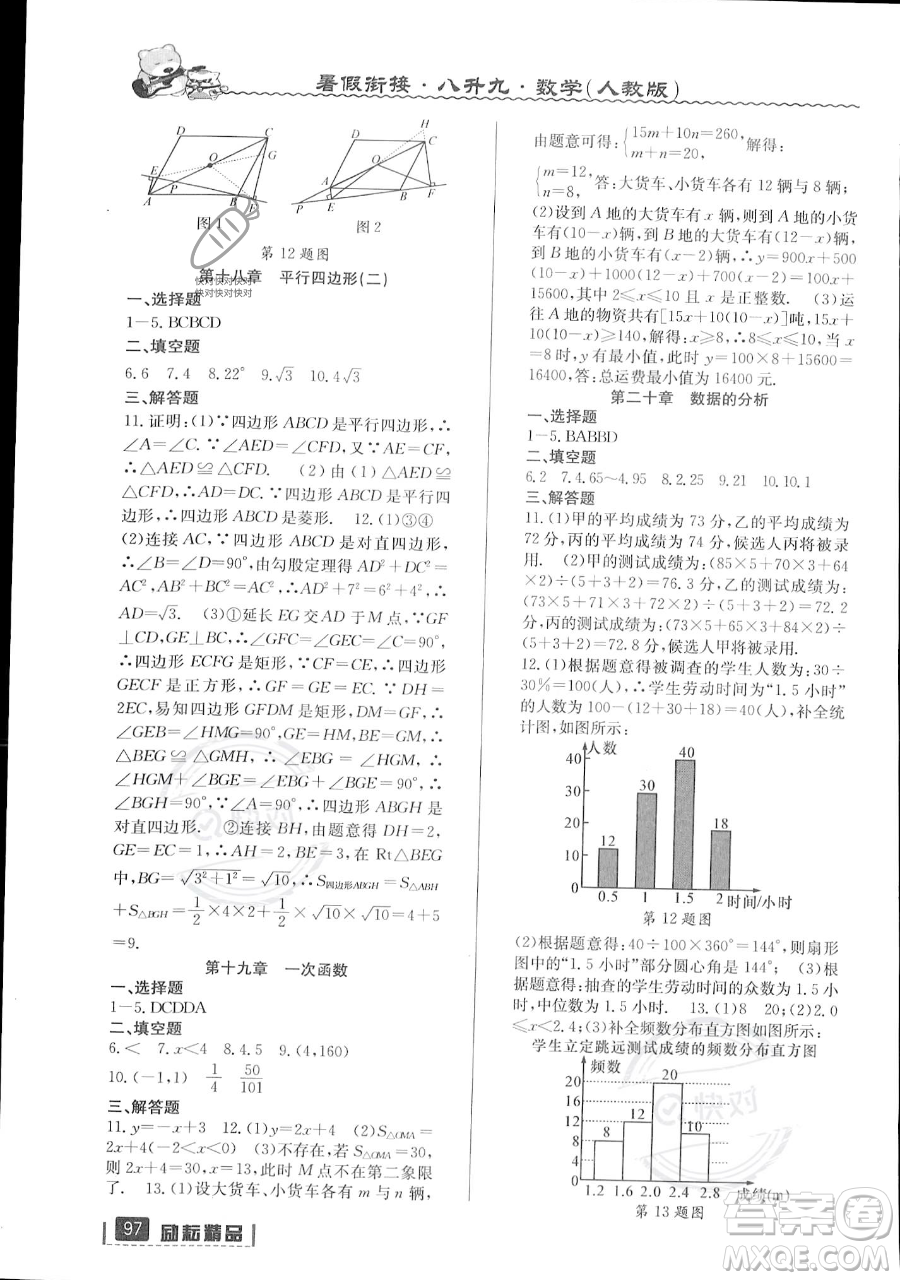 暑假衔接·八升九·数学(人教版)
D C G O E P A B F
图1
H D C O A B F E P
图2
第12题图
第十八章 平行四边形(二)
快对快对快对
快对快对快对
一、选择题
1—5. BCBCD
二、填空题
6. 6 7. 4 8. 22° 9. √3 10. 4√3
三、解答题
11. 证明:(1)∵四边形ABCD是平行四边形,∴
∠A=∠C. ∵∠AED=∠CFD,又∵AE=CF,
∴△AED≌△CFD. (2)由(1)△AED≌△
CFD,∴AD=DC. ∵四边形ABCD是平行四
边形,∴四边形ABCD是菱形. 12. (1)③④
(2)连接AC,∵∠B=90°,由勾股定理得AD²+DC²=
AC²,AB²+BC²=AC²,∴AD²+7²=6²+4²,∴
AD=√3. (3)①延长EG交AD于M点,∵GF
⊥CD,GE⊥BC,∴∠GFC=∠GEC=∠C=90°,
∴四边形ECFG是矩形,∵CE=CF,∴四边形
GECF是正方形,∴GE=GF=EC. ∵DH=
2EC,易知四边形GFDM是矩形,∴DM=GF,∴
∠GEB=∠HMG=90°,∴MH=MD=GE. ∴
△BEG≌△GMH,∴∠HGM=∠GBE. ∴
∠HGM+∠BGE=∠EBG+∠BGE=90°,∴
∠BGH=90°. ∵∠A=90°,∴四边形ABGH是
对直四边形. ②连接BH,由题意得DH=2,
GE=EC=1,∴AH=2,BE=3,在Rt△BEG
中,BG=√3²+1²=√10,∴S四边形ABGH=S△ABH
+S△BGH=1/2×4×2+1/2×√10×√10=4+5
=9.
第十九章 一次函数
一、选择题
1—5. DCDDA
二、填空题
6. < 7. x<4 8. 4.5 9. (4,160)
10. (-1,1) 1/4 50/101
三、解答题
11. y=-x+3 12. (1)y=2x+4 (2)S△OMA=
2x+4(-2<x<0) (3)不存在,若S△OMA=30,
则2x+4=30,x=13,此时M点不在第二象限
了. 13. (1)设大货车、小货车各有m与n辆,
97 励耘精品
由题意可得:{15m+10n=260, m+n=20, 解得:
{m=12, n=8, 答:大货车、小货车各有12辆与8辆;
(2)设到A地的大货车有x辆,则到A地的小货
车有(10-x)辆,到B地的大货车有(12-x)辆,
到B地的小货车有(x-2)辆,∴y=900x+500
(10-x)+1000(12-x)+700(x-2)=100x+
15600,其中2≤x≤10且x是正整数. (3)运
往A地的物资共有[15x+10(10-x)]吨,15x+
10(10-x)≥140,解得:x≥8,∴8≤x≤10,当x
=8时,y有最小值,此时y=100×8+15600=
16400,答:总运费最小值为16400元.
第二十章 数据的分析
一、选择题
1—5. BABBD
二、填空题
6. 2 7. 4.65~4.95 8. 2.25 9. 21 10. 10.1
三、解答题
11. (1)甲的平均成绩为73分,乙的平均成绩为
72分,丙的平均成绩为74分,候选人丙将被录
用. (2)甲的测试成绩为(85×5+70×3+64
×2)÷(5+3+2)=76.3分,乙的测试成绩为:
(73×5+71×3+72×2)÷(5+3+2)=72.2
分,丙的测试成绩为:(73×5+65×3+84×2)
÷(5+3+2)=72.8分,候选人甲将被录用.
12. (1)根据题意得被调查的学生人数为:30÷
30%=100(人),∴学生劳动时间为“1.5小时”
的人数为100-(12+30+18)=40(人),补全统
计图,如图所示:
人数
40 30 20 10 0
12 30 40 18
0.5 1 1.5 2 时间/小时
第12题图
(2)根据题意得:40÷100×360°=144°,则扇形
图中的“1.5小时”部分圆心角是144°; (3)根据
题意得:抽查的学生劳动时间的众数为1.5小
时,中位数为1.5小时. 13. (1)8 20;(2)2.0
≤x<2.4;(3)补全频数分布直方图如图所示:
学生立定跳远测试成绩的频数分布直方图
频数
20 18 16 14 12 10 8 6 4 2 0
8 12 20 10
1.2 1.6 2.0 2.4 2.8 成绩(m)
第13题图
快对
答案圈
MXQE.COM